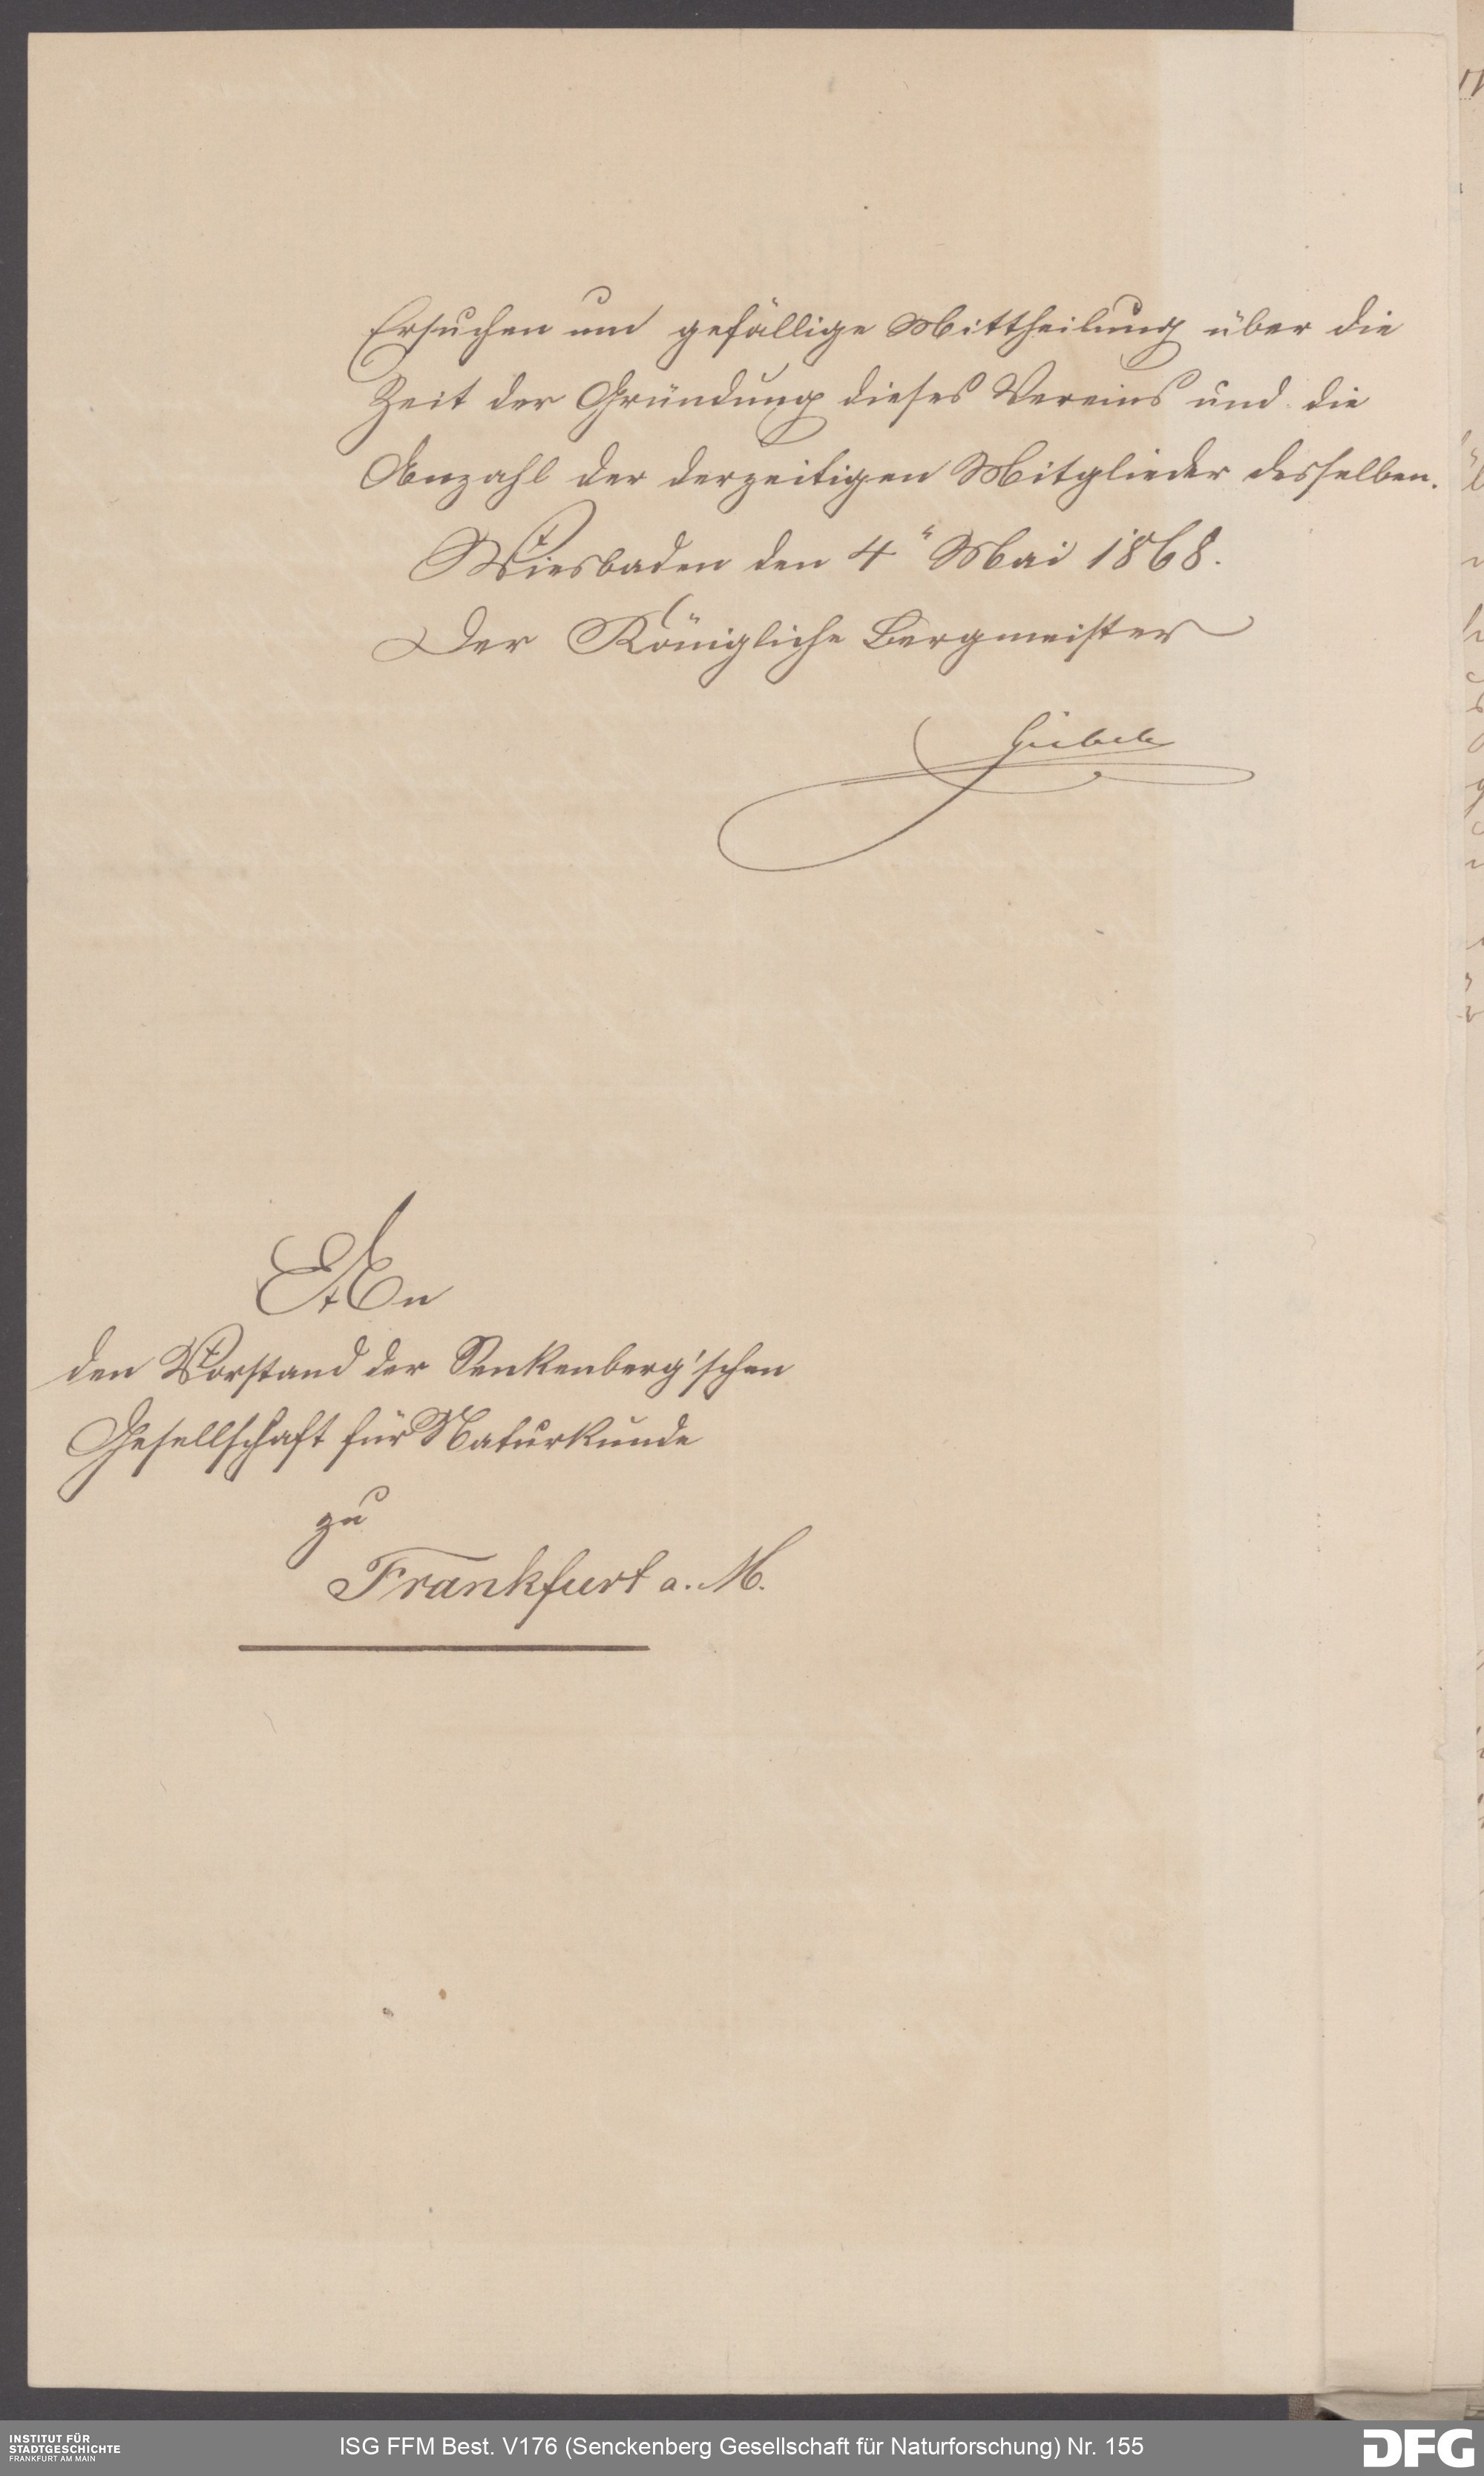 Ersuchen um gefällige Mittheilung über die
Zeit der Gründung dieses Vereins und die
Anzahl der derzeitigen Mitglieder desselben.
Wiesbaden den 4" Mai 1868.
Der Königliche Bergmeister
An
den Vorstand der Senkenberg'schen
Gesellschaft für Naturkunde
zu
Frankfurt a. M.
INSTITUT FÜR
STADTGESCHICHTE
FRANKFURT AM MAIN
ISG FFM Best. V176 (Senckenberg Gesellschaft für Naturforschung) Nr. 155
DFG